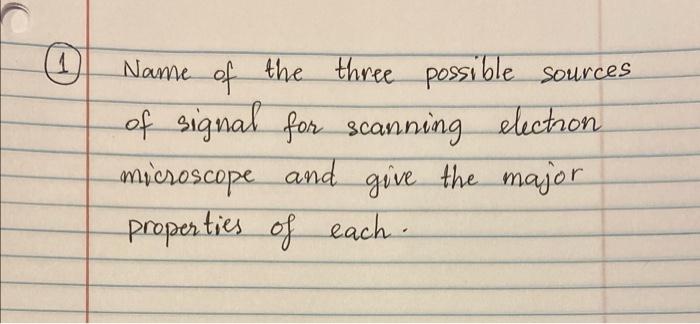 1 Name of the three possible sources
of signal for scanning electron
microscope and give the major
properties of each.